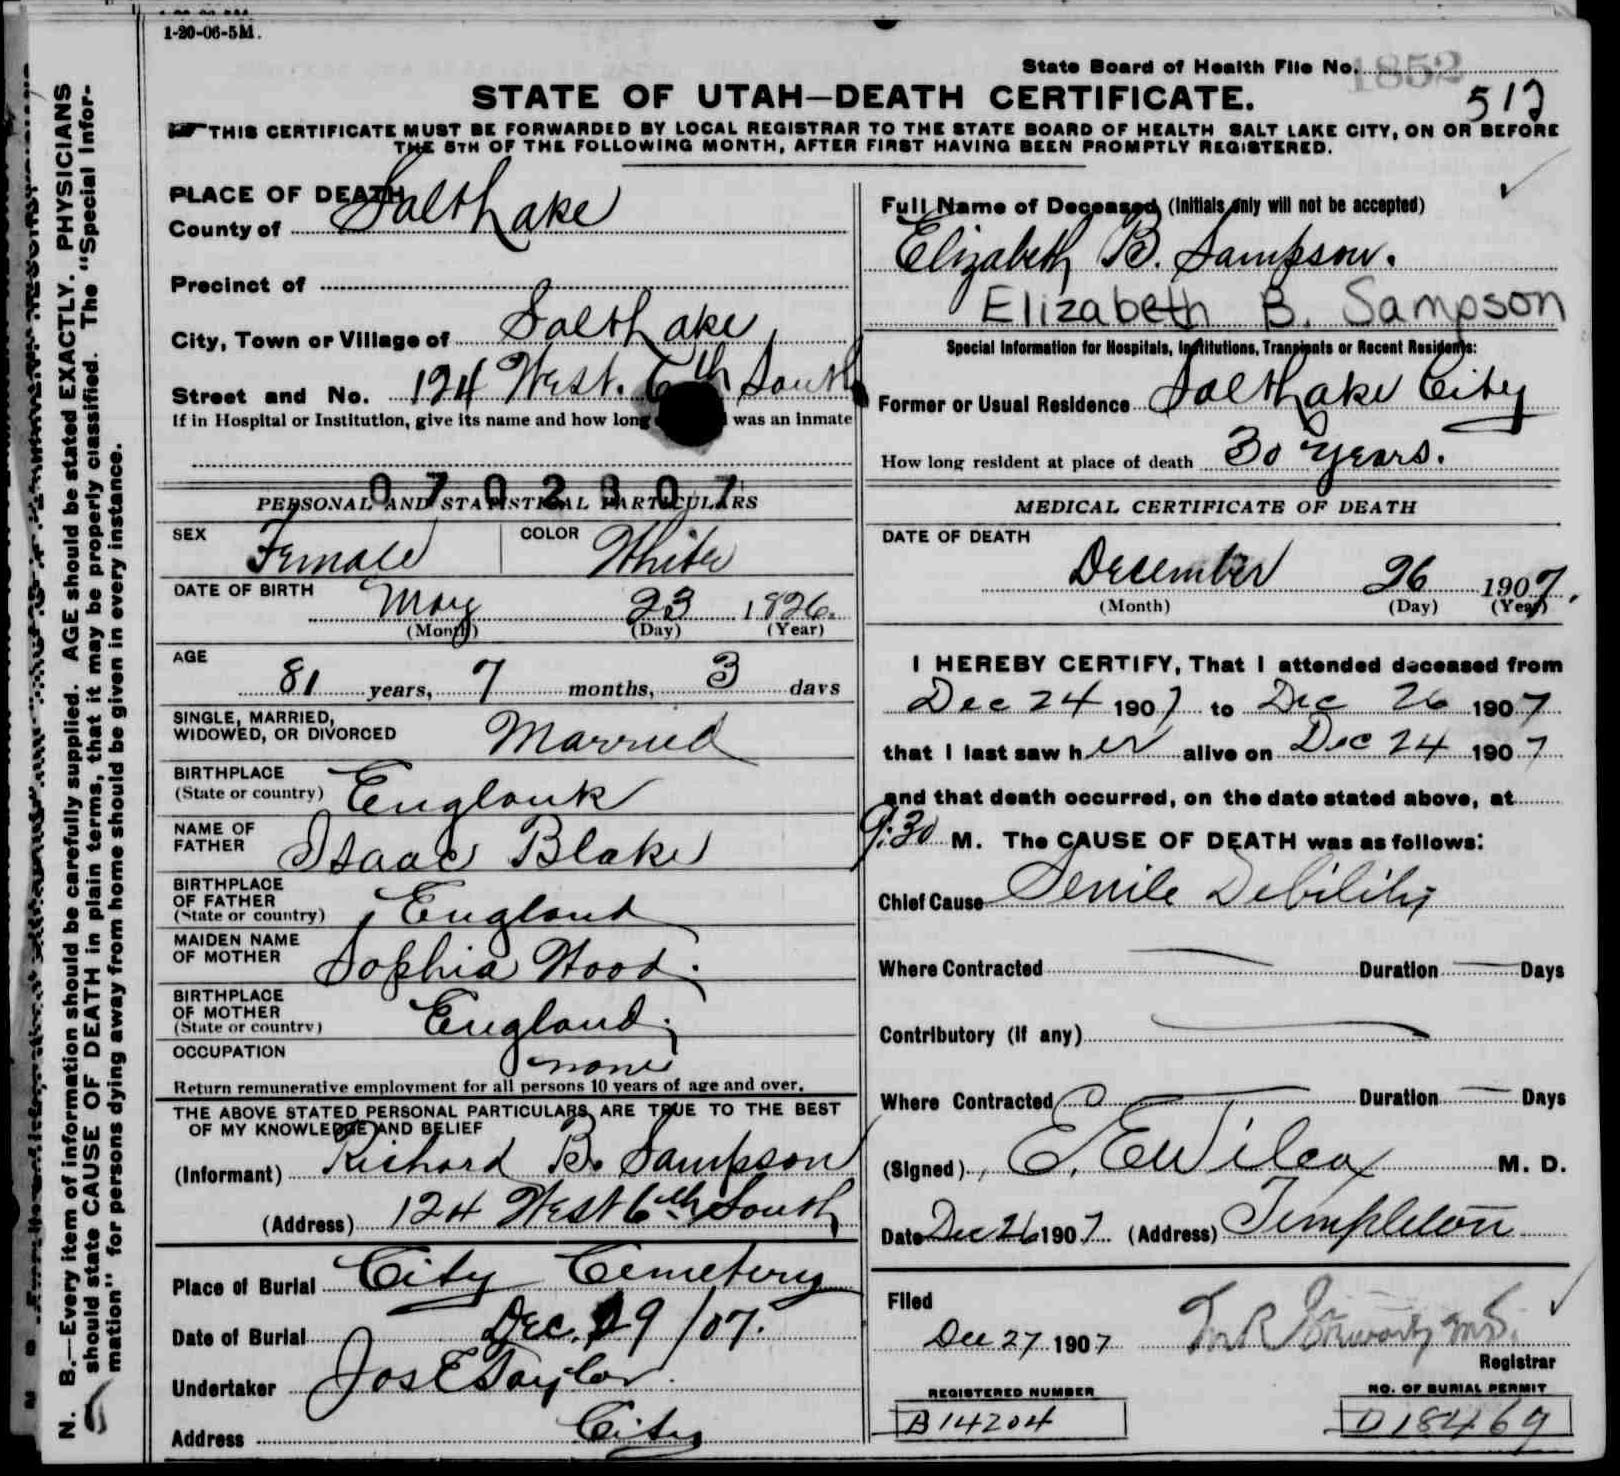 1-20-06-5M.
State Board of Health File No. 1852
512
STATE OF UTAH—DEATH CERTIFICATE.
THIS CERTIFICATE MUST BE FORWARDED BY LOCAL REGISTRAR TO THE STATE BOARD OF HEALTH SALT LAKE CITY, ON OR BEFORE
THE 5TH OF THE FOLLOWING MONTH, AFTER FIRST HAVING BEEN PROMPTLY REGISTERED.
N. B.—Every item of information should be carefully supplied. AGE should be stated EXACTLY. PHYSICIANS
should state CAUSE OF DEATH in plain terms, that it may be properly classified. The "Special Infor-
mation" for persons dying away from home should be given in every instance.
PLACE OF DEATH
County of Salt Lake
Precinct of
City, Town or Village of Salt Lake
Street and No. 124 West. 6th South
If in Hospital or Institution, give its name and how long was an inmate
0702307
PERSONAL AND STATISTICAL PARTICULARS
SEX Female COLOR White
DATE OF BIRTH May 23 1826.
(Month) (Day) (Year)
AGE 81 years, 7 months, 3 days
SINGLE, MARRIED,
WIDOWED, OR DIVORCED Married
BIRTHPLACE
(State or country) England
NAME OF
FATHER Isaac Blake
BIRTHPLACE
OF FATHER
(State or country) England
MAIDEN NAME
OF MOTHER Sophia Wood.
BIRTHPLACE
OF MOTHER
(State or country) England.
OCCUPATION none
Return remunerative employment for all persons 10 years of age and over.
THE ABOVE STATED PERSONAL PARTICULARS ARE TRUE TO THE BEST
OF MY KNOWLEDGE AND BELIEF
(Informant) Richard B. Sampson
(Address) 124 West 6th South
Place of Burial City Cemetery
Date of Burial Dec. 29/07.
Undertaker Jos E Taylor.
Address City
Full Name of Deceased (Initials only will not be accepted)
Elizabeth B. Sampson.
Elizabeth B. Sampson
Special Information for Hospitals, Institutions, Transients or Recent Residents:
Former or Usual Residence Salt Lake City
How long resident at place of death 30 years.
MEDICAL CERTIFICATE OF DEATH
DATE OF DEATH
December 26 1907.
(Month) (Day) (Year)
I HEREBY CERTIFY, That I attended deceased from
Dec 24 1907 to Dec 26 1907
that I last saw her alive on Dec 24 1907
and that death occurred, on the date stated above, at
9:30 M. The CAUSE OF DEATH was as follows:
Chief Cause Senile Debility
Where Contracted Duration Days
Contributory (if any)
Where Contracted Duration Days
(Signed) E. E. Wilcox M. D.
Date Dec 26 1907 (Address) Templeton
Filed
Dec 27 1907
Registrar
REGISTERED NUMBER
B14204
NO. OF BURIAL PERMIT
D18469